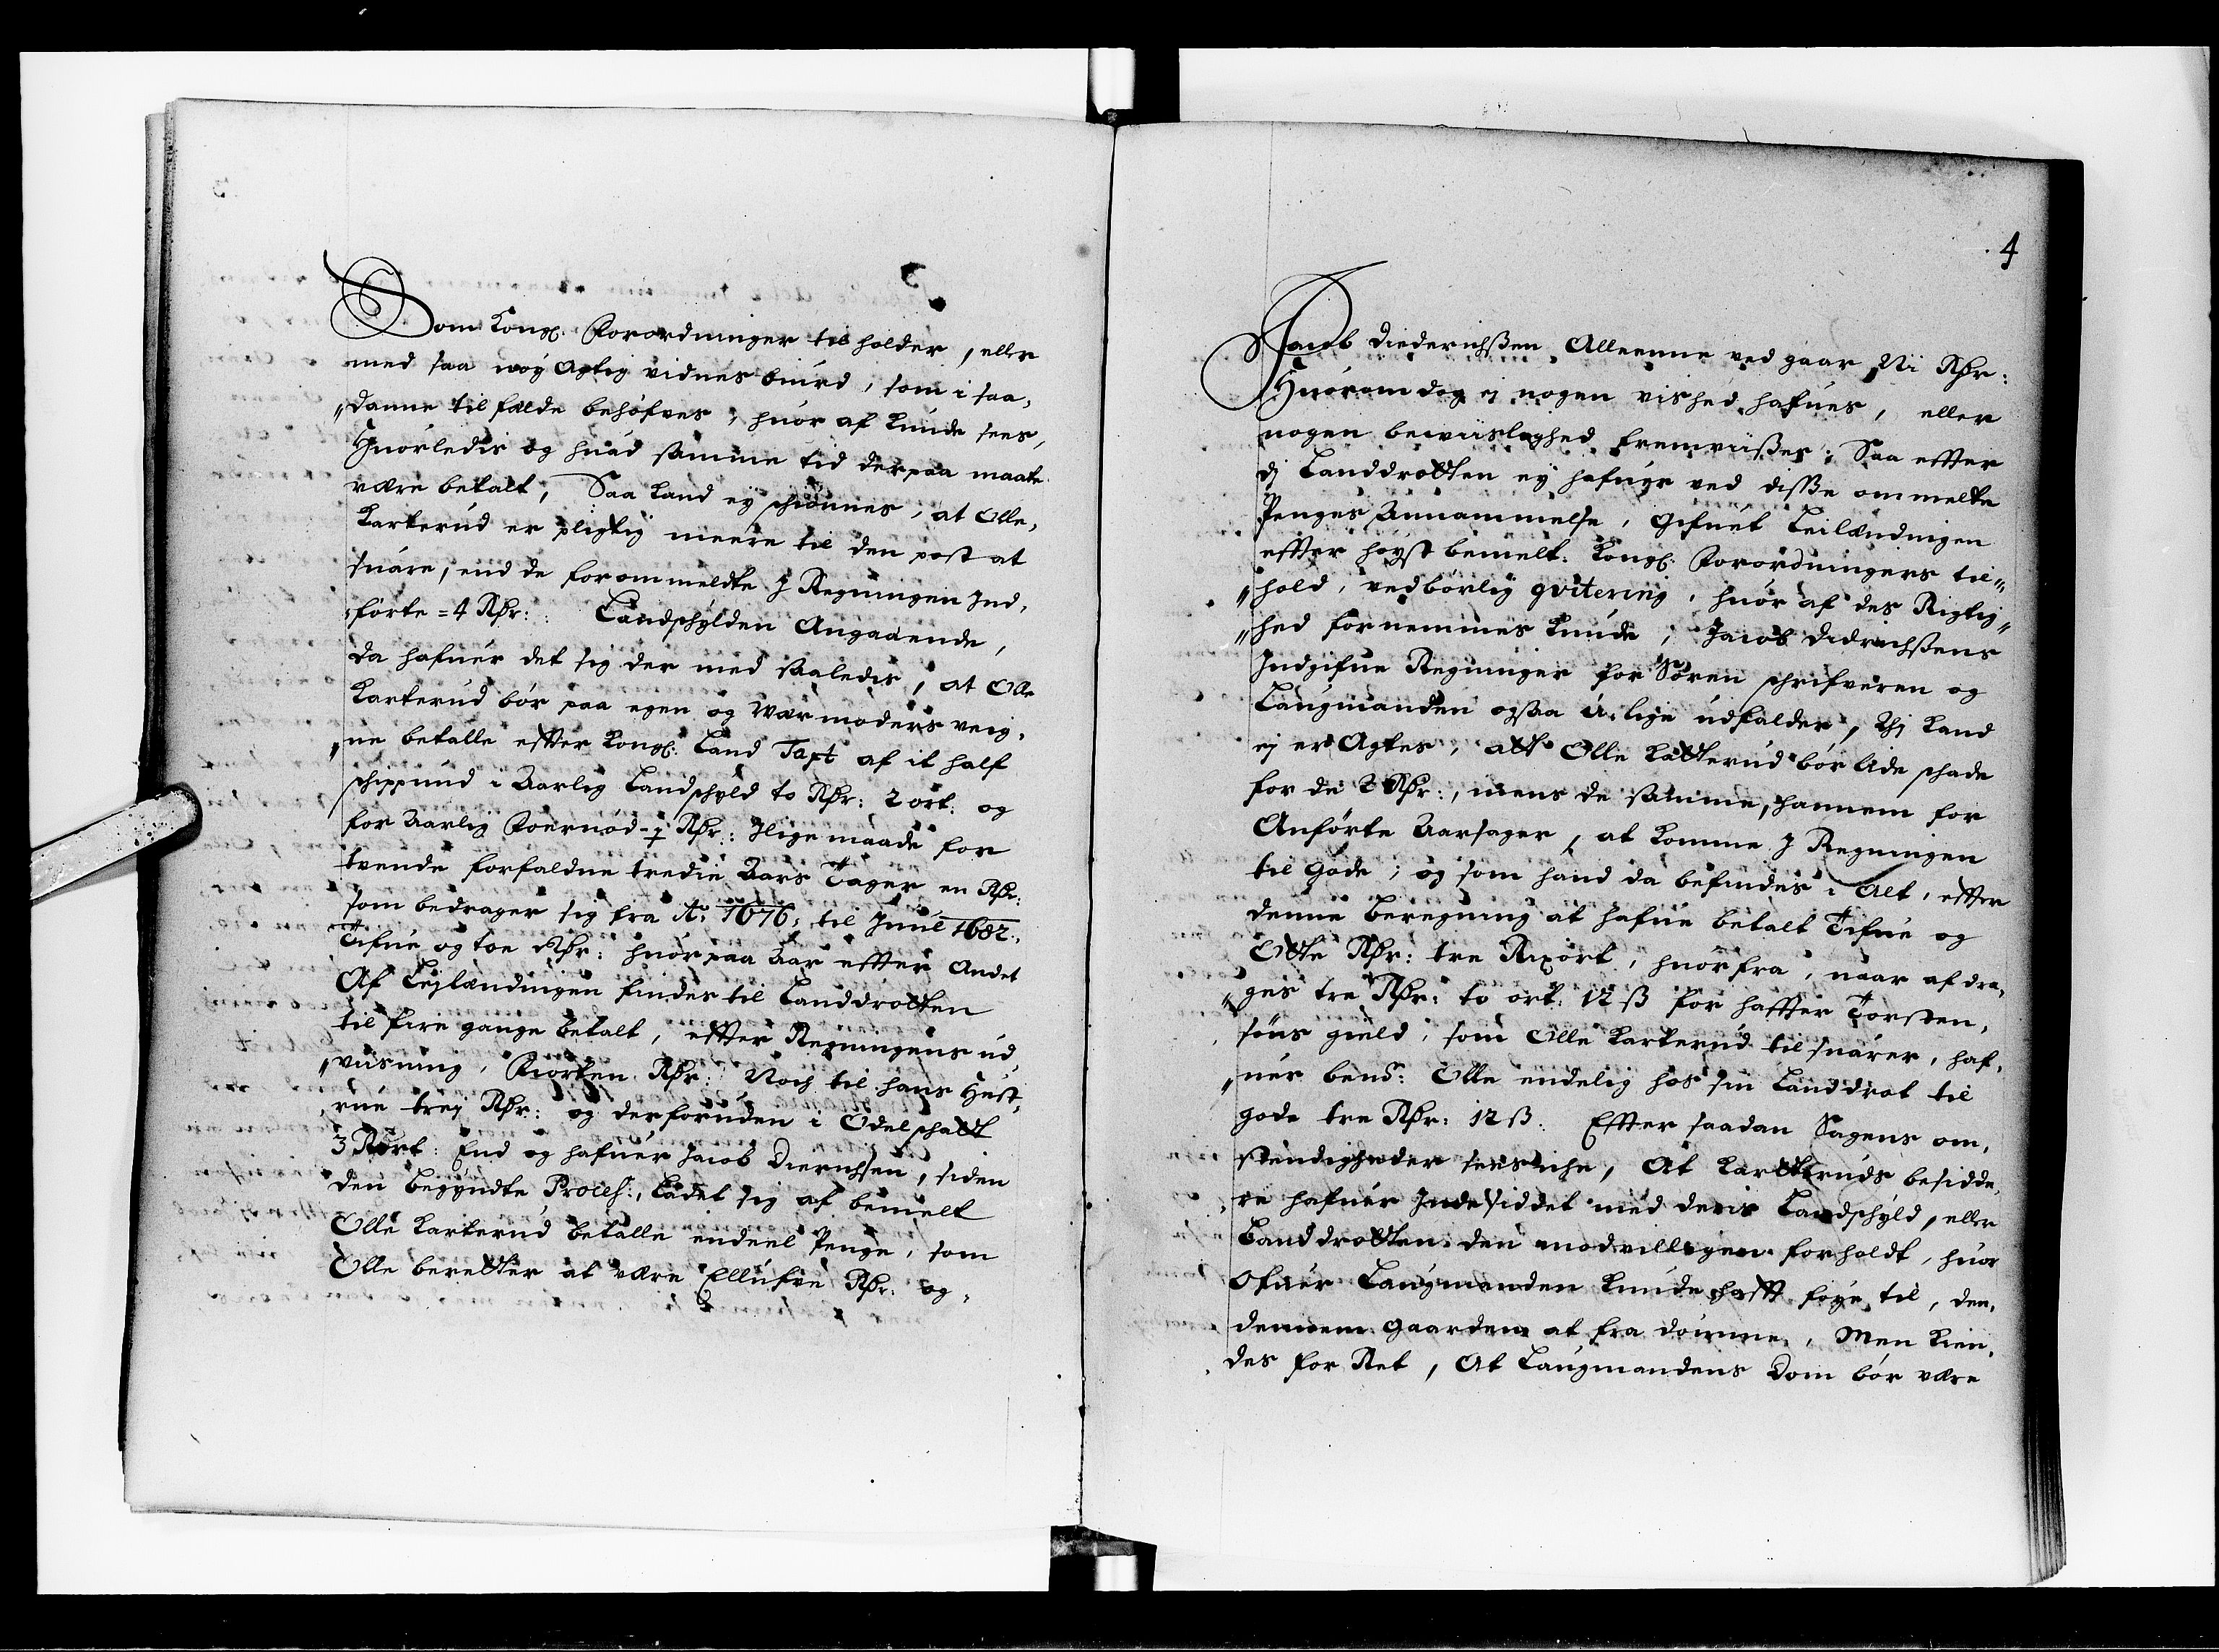 Som Kongl. Forordninger til holder, eller
med saa nøyagtig vidnes biurd, som i saa,
"danne til fælde behøfves, huor af kunde sees,
Huorledis og huad samme tid derpaa maate
være betalt, Saa kand ey schiønnes, at Olle,
Karterud er pligtig meere til den post at
suare, end de forommeldte J Regningen Ind,
førte = 4 Rdr: Landschylden Angaaende,
da hafuer det sig der med saaledis, at Olle
Karterud bør paa egen og Wærmoders veig,
"ne betalle effter Kongl. Land Taxt af it half
schippund i Aarlig Landschyld to Rdr: 2 ort: og
for Aarlig Foernød - 1 Rdr: Jlige maade for
tvende forfaldne tredie Aars Tager en Rdr:
som bedrager sig fra Ao: 1676, til Junii 1682.
Tifue og toe Rdr: huorpaa Aar effter Andet
Af Leylændingen findes til Landdrotten
til fire gange betalt, effter Regningens ud
"viisning, Fiorten Rdr: Noch til hans Hust,
rue trej Rdr: og derforuden i Odelschatt
3 Rort: End og hafuer Jacob Dierichsen, siden
den begyndte Process:, ladet sig af bemelt
Olle Karterud betalle endeel Penge, som
Olle beretter at være Ellufve Rdr: og,
4
Jacob Diederichssen Alleenne ved gaar Ni Rdr:
Huorom dog ej nogen vished hafues, eller
nogen beviislighed fremviisses; Saa effter
dj Landdrotten ey hafuer ved disse ommelte
Penges Annammelse, Gifuet Leilændingen
effter høyst bemelt. Kongl. Forordningers til"
"hold, vedbørlig qvitering, huor af des Rigtig"
"hed fornemmes kunde, Jacob Didrichssens
Indgifne Regninger for Søren schrifveren og
Laugmanden ogsaa u-lige udfalder, Thj kand
ej er Agtes, att Olle Katterud bør lide schade
for de 2 Rdr:, mens de samme, hannem for
Anførte Aarsager, at komme J Regningen
til Gode; og som hand da befindes i Alt, effter
denne beregning at hafue betalt Tifue og
Otte Rdr: tre Rixort, huorfra, naar af dra,
"ges tre Rdr: to ort: 12 ß for haffter Torsten,
søns gield, som Olle Karterud til suarer, haf,
"uer bend: Olle endelig hos sin Landdrot til
gode tre Rdr: 12 ß. Effter saadan Sagens om,
stendigheder seesiche, At Kartteruds besidde,
re hafuer Inde siddet med deris Landschyld, eller
Landdrotten den modvilligen forholdt, huor
Ofuer Laugmanden kunde hafft føye til, den,
dennem Gaarden at fra dømme, Men kien,
des for Ret, At Laugmandens Dom bør være